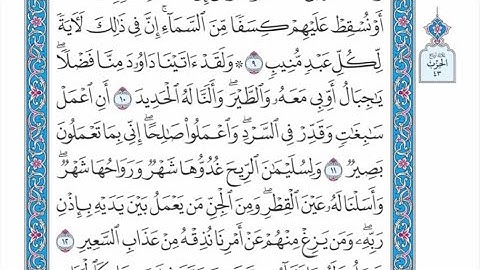 أَوْ نُسْقِطْ عَلَيْهِمْ كِسَفًا مِّنَ ٱلسَّمَآءِۚ إِنَّ فِي ذَٰلِكَ لَأٓيَةً
لِّكُلِّ عَبْدٍ مُّنِيبٍ ٩ ۞ وَلَقَدْ ءَاتَيْنَا دَاوُۥدَ مِنَّا فَضْلًاۖ
يَٰجِبَالُ أَوِّبِي مَعَهُۥ وَٱلطَّيْرَۖ وَأَلَنَّا لَهُ ٱلْحَدِيدَ ١٠ أَنِ ٱعْمَلْ
سَٰبِغَٰتٍ وَقَدِّرْ فِي ٱلسَّرْدِۖ وَٱعْمَلُوا۟ صَٰلِحًاۖ إِنِّي بِمَا تَعْمَلُونَ
بَصِيرٌ ١١ وَلِسُلَيْمَٰنَ ٱلرِّيحَ غُدُوُّهَا شَهْرٌ وَرَوَاحُهَا شَهْرٌۖ
وَأَسَلْنَا لَهُۥ عَيْنَ ٱلْقِطْرِۖ وَمِنَ ٱلْجِنِّ مَن يَعْمَلُ بَيْنَ يَدَيْهِ بِإِذْنِ
رَبِّهِۦۖ وَمَن يَزِغْ مِنْهُمْ عَنْ أَمْرِنَا نُذِقْهُ مِنْ عَذَابِ ٱلسَّعِيرِ ١٢
الحزب
٤٣